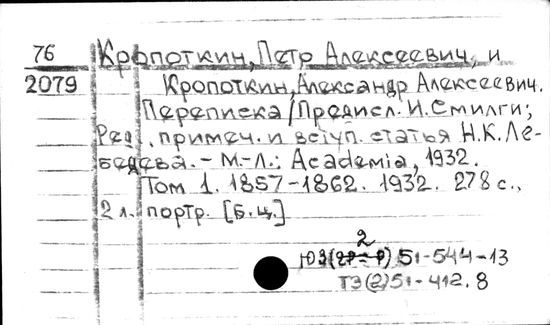 76 Кропоткин, Петр Алексеевич, и
2079 Кропоткин, Александр Алексеевич.
Переписка / Предисл. И. Смилги;
Ред., примеч. и вступ. статья Н.К. Ле-
бедева. - М.-Л.: Academia, 1932.
Том 1. 1857-1862. 1932. 278 с.,
2 л. портр. [Б.ц.]
2
51-544-13
ТЭ(2)51-412.8